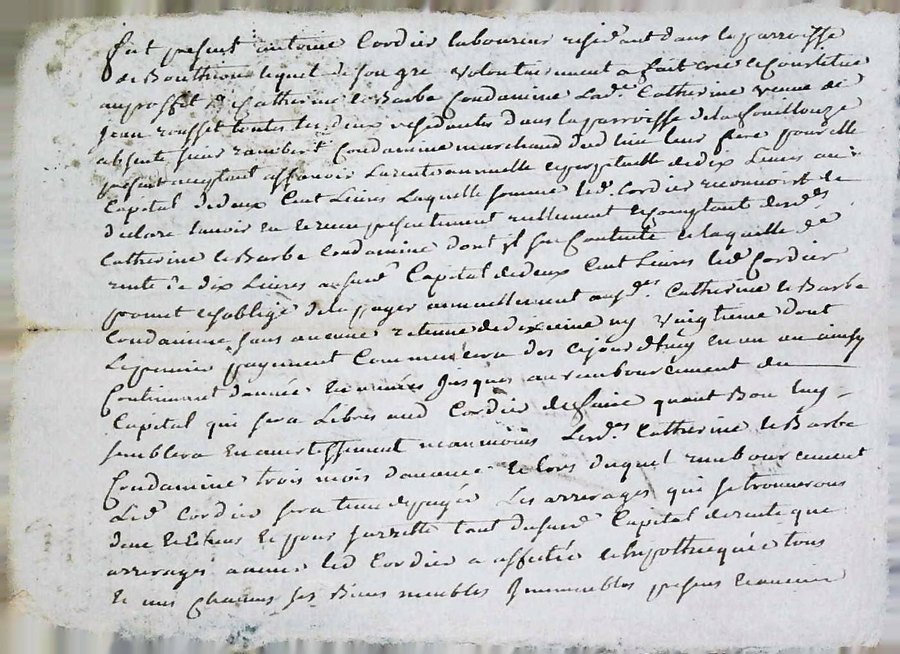 fut present antoine Cordier laboureur residant dans la parroisse
de Boutheon lequel de son gre volontairement a fait cree et Constitue
au proffit de Catherine et Barbe Condamine Lade Catherine veuve de
Jean rousset toutes les deux residantes dans la parroisse de la fouillouze
absente sieur rambert Condamine marchand dud lieu leur frere pour elle
present acceptant assavoir La rente annuelle et perpetuelle de dix Livres au
Capital de deux Cent Livres Laquelle somme led. Cordier reconnoist et
declare lavoir eu et receu presentement reellement et Comptant desdes
Catherine et Barbe Condamine dont il se Contente et laquelle de
rente de dix Livres ausud Capital de deux Cent Livres led Cordier
promet et soblige de la payer annuellement ausdes Catherine et Barbe
Condamine sans aucune retenue de dixieme ny vingtieme dont
Le premier payement Commencera des cejourdhuy en un an ainsy
Continuant dannée en années jusques au remboursement du
Capital qui sera Libre aud Cordier de faire quant Bon luy
semblera En avertissement neanmoins Lesdes Catherine et Barbe
Condamine trois mois davance et lors duquel remboursement
Led Cordier sera tenu de payer Les arrerages qui se trouveront
deue et Echus et pour surrette tant dusud Capital de rente que
arrerages dicelle led Cordier a affectée et hypothequée tous
Et uns Chacuns ses Biens meubles Immeubles presens et avenir